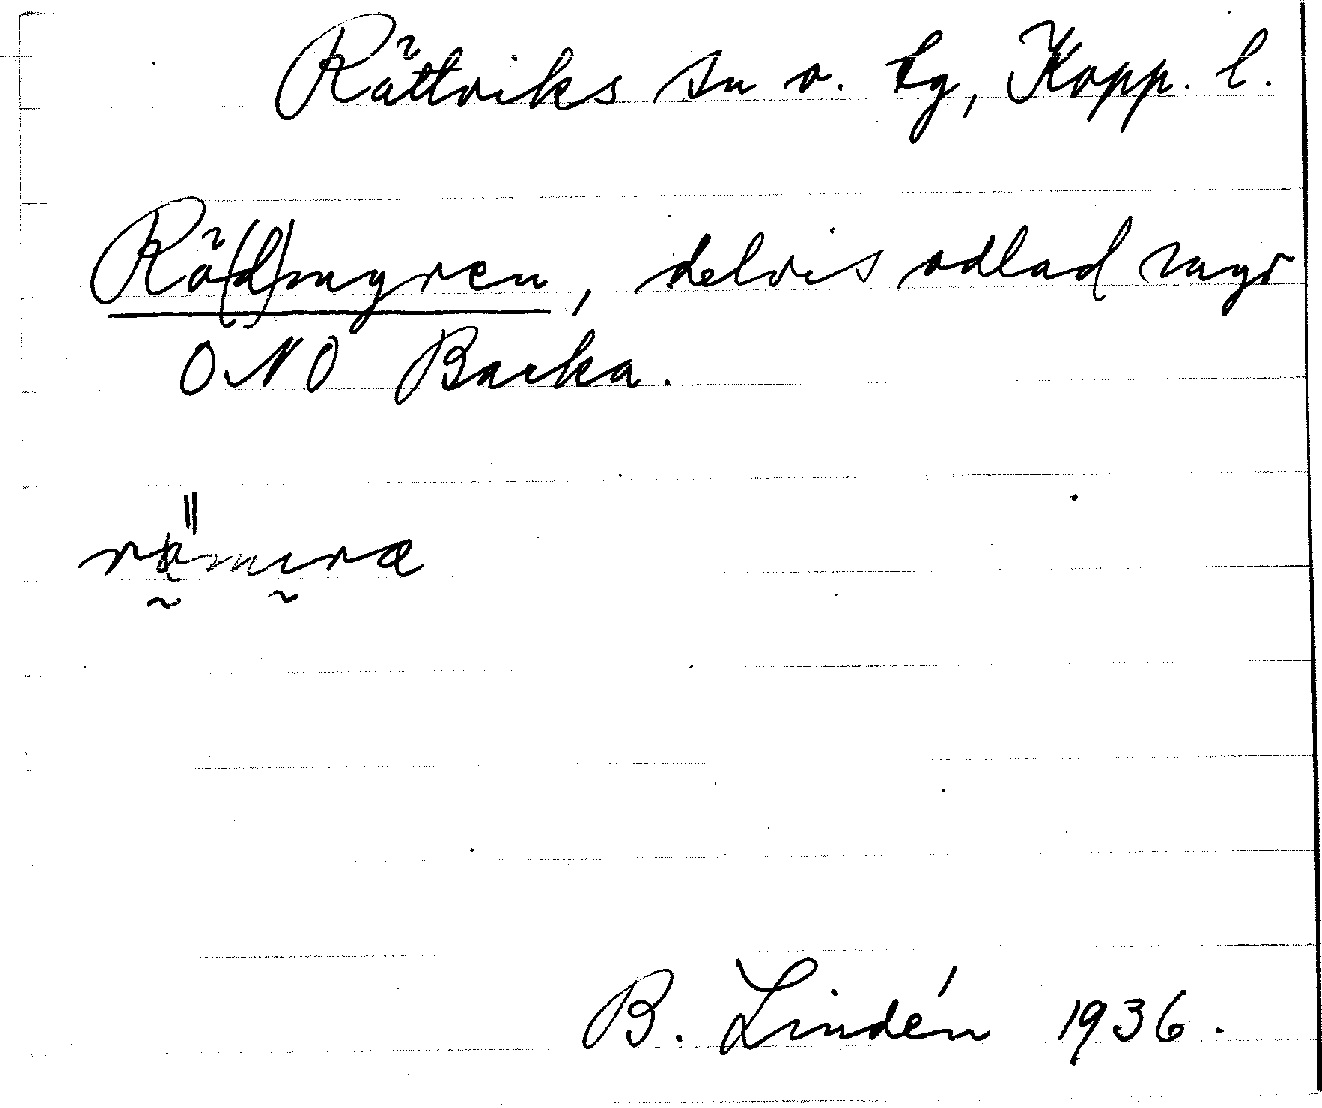 Rättviks sn o. tg, Kopp. l.
Rö(d)myren, delvis odlad myr
ONO Backa.
B. Lindén 1936.